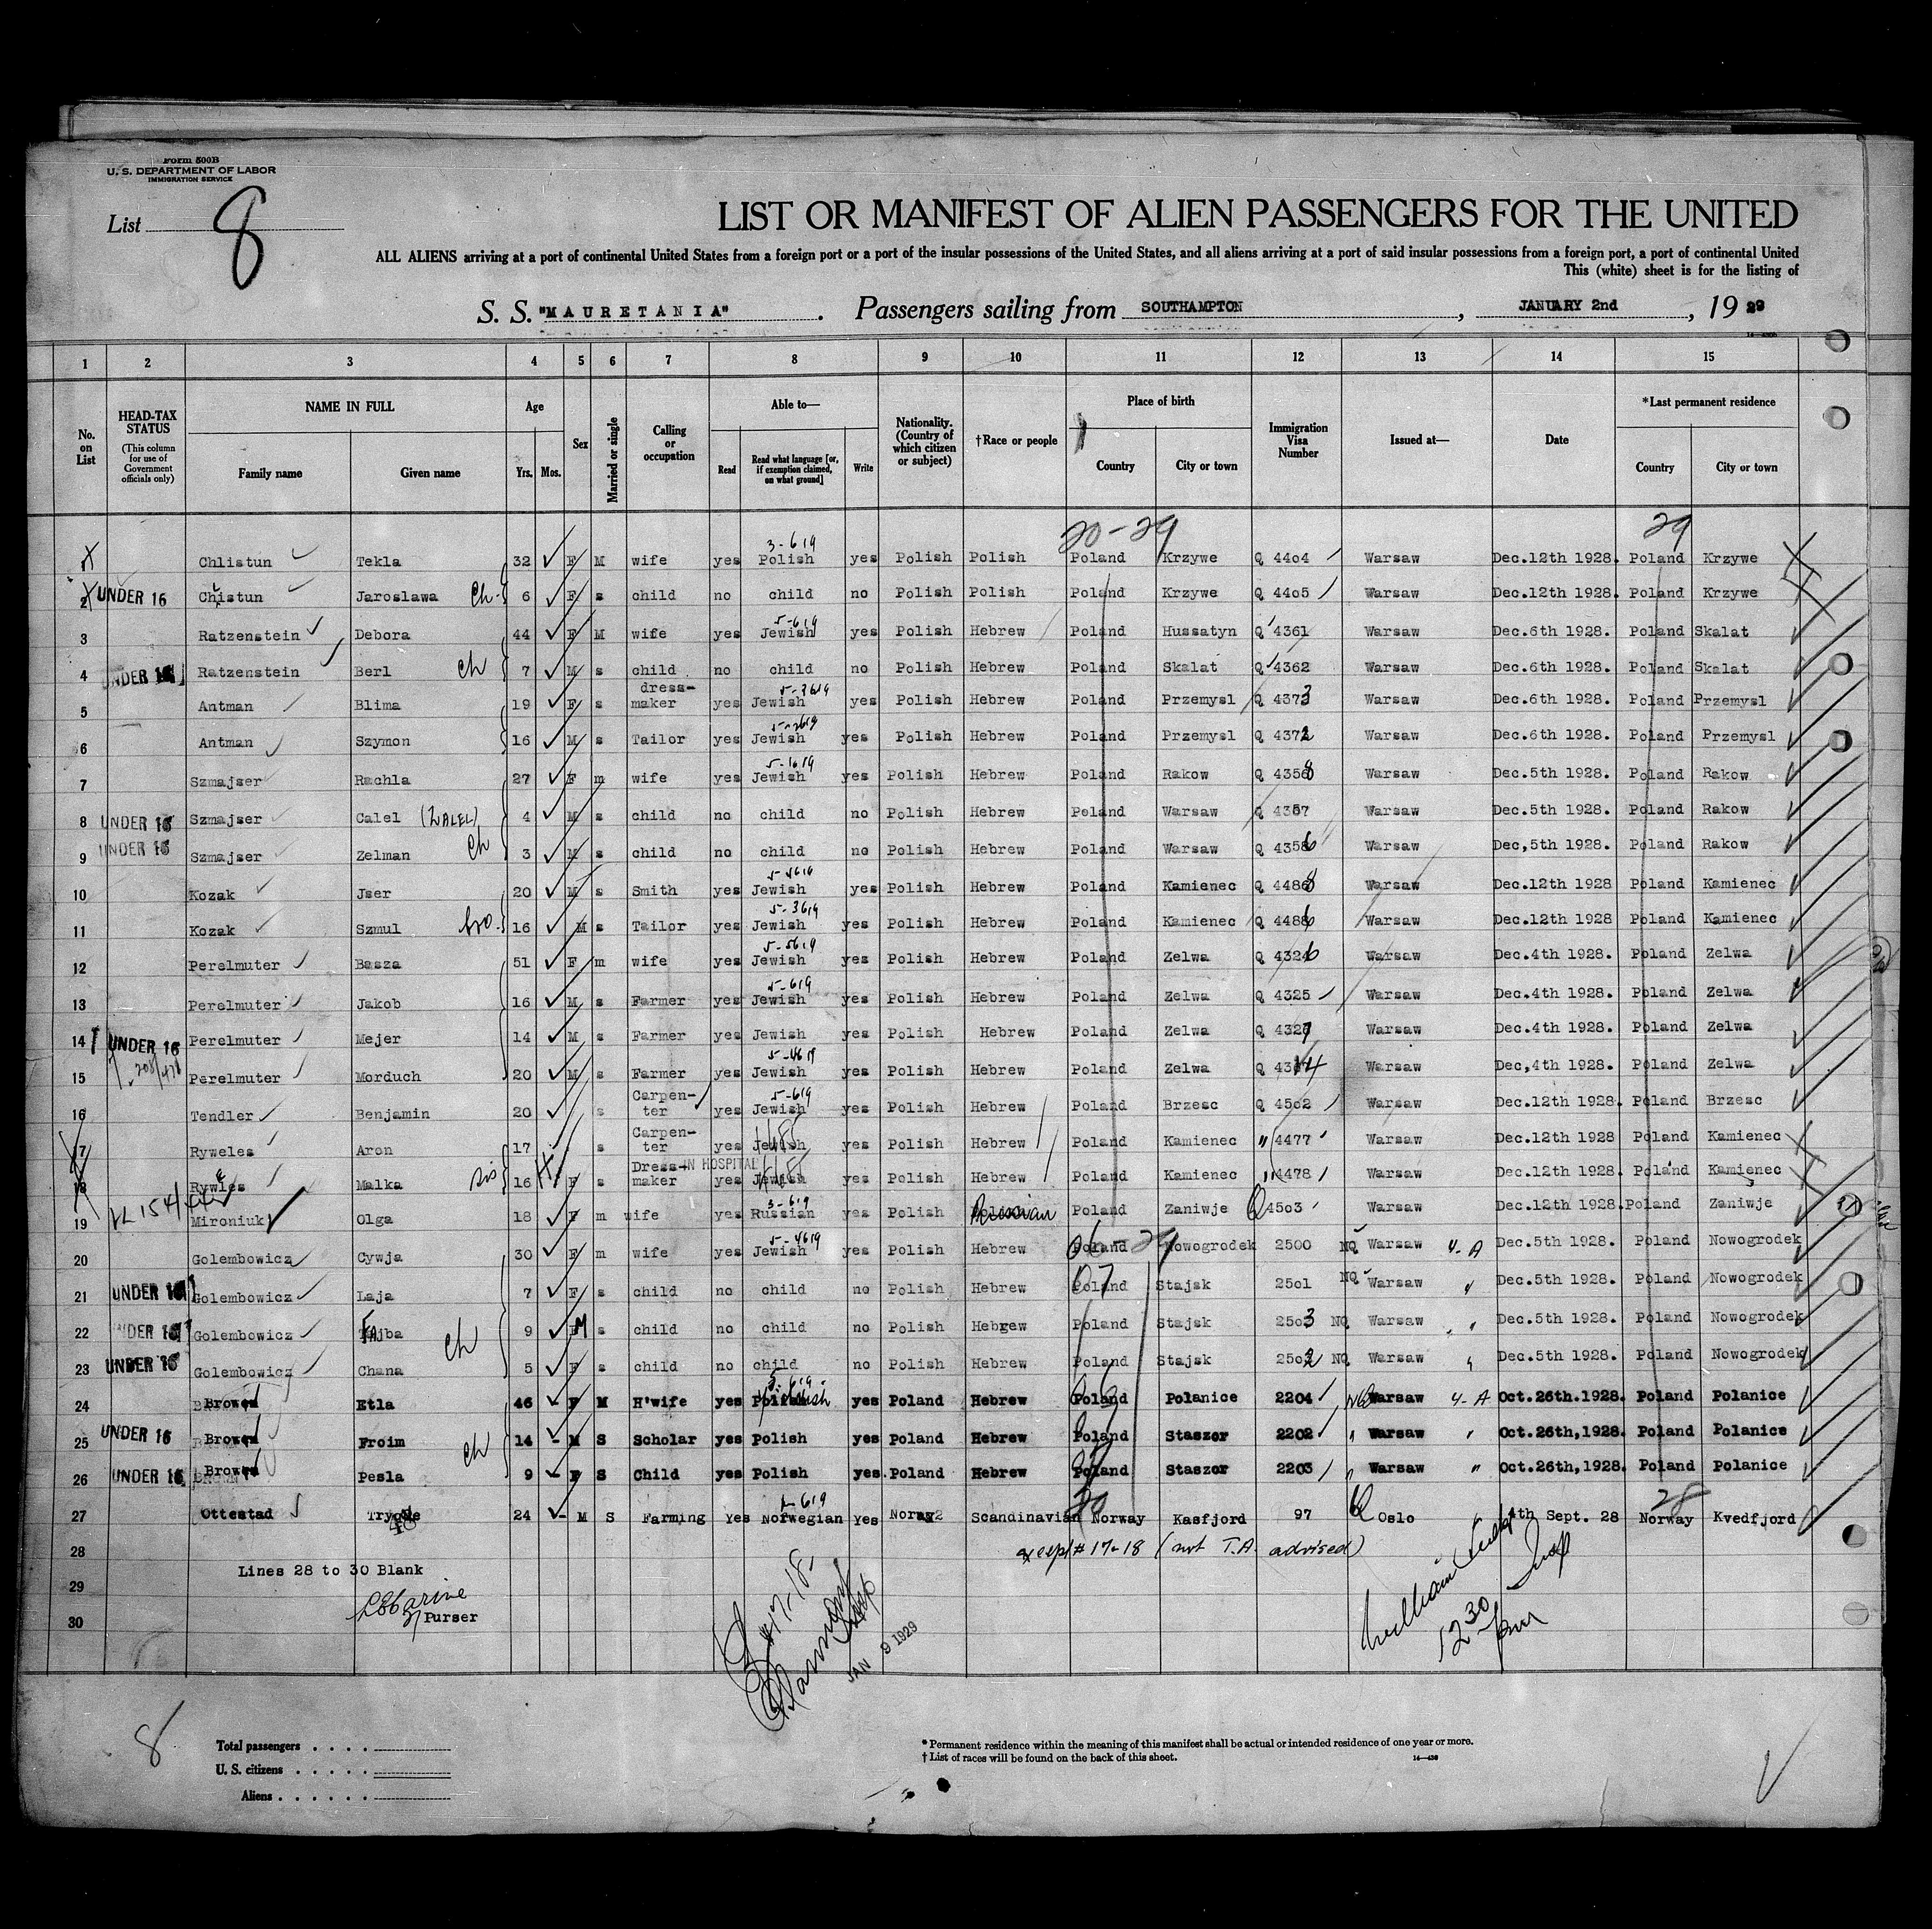 Form 500B
U. S. DEPARTMENT OF LABOR
IMMIGRATION SERVICE
List 8
LIST OR MANIFEST OF ALIEN PASSENGERS FOR THE UNITED
ALL ALIENS arriving at a port of continental United States from a foreign port or a port of the insular possessions of the United States, and all aliens arriving at a port of said insular possessions from a foreign port, a port of continental United
This (white) sheet is for the listing of
S. S. "MAURETANIA". Passengers sailing from SOUTHAMPTON, JANUARY 2nd, 1929
1 2 3 4 5 6 7 8 9 10 11 12 13 14 15
No. on List
HEAD-TAX STATUS (This column for use of Government officials only)
NAME IN FULL
Family name Given name
Age
Yrs. Mos.
Sex
Married or single
Calling or occupation
Able to—
Read Read what language [or, if exemption claimed, on what ground] Write
Nationality. (Country of which citizen or subject)
†Race or people
Place of birth
Country City or town
Immigration Visa Number
Issued at—
Date
*Last permanent residence
Country City or town
20-29 29
1 Chlistun Tekla 32 F M wife yes 3-619 Polish yes Polish Polish Poland Krzywe Q 4404 Warsaw Dec.12th 1928. Poland Krzywe
2 UNDER 16 Chistun Jaroslawa Ch. 6 F s child no child no Polish Polish Poland Krzywe Q 4405 Warsaw Dec.12th 1928. Poland Krzywe
3 Ratzenstein Debora 44 F M wife yes 5-619 Jewish yes Polish Hebrew Poland Hussatyn Q 4361 Warsaw Dec.6th 1928. Poland Skalat
4 UNDER 16 Ratzenstein Berl Ch 7 M s child no child no Polish Hebrew Poland Skalat Q 4362 Warsaw Dec.6th 1928. Poland Skalat
5 Antman Blima 19 F s dress-maker yes 5-3619 Jewish yes Polish Hebrew Poland Przemysl Q 4373 Warsaw Dec.6th 1928. Poland Przemysl
6 Antman Szymon 16 M s Tailor yes 5-2619 Jewish yes Polish Hebrew Poland Przemysl Q 4372 Warsaw Dec.6th 1928. Poland Przemysl
7 Szmajser Rachla 27 F m wife yes 5-1619 Jewish yes Polish Hebrew Poland Rakow Q 4358 Warsaw Dec.5th 1928. Poland Rakow
8 UNDER 16 Szmajser Calel (ZALEL) 4 M s child no child no Polish Hebrew Poland Warsaw Q 4357 Warsaw Dec.5th 1928. Poland Rakow
9 UNDER 16 Szmajser Zelman Ch 3 M s child no child no Polish Hebrew Poland Warsaw Q 4356 Warsaw Dec,5th 1928. Poland Rakow
10 Kozak Jser 20 M s Smith yes Jewish yes Polish Hebrew Poland Kamienec Q 4488 Warsaw Dec.12th 1928 Poland Kamienec
11 Kozak Szmul bro. 16 M s Tailor yes 5-3619 Jewish yes Polish Hebrew Poland Kamienec Q 4486 Warsaw Dec.12th 1928 Poland Kamienec
12 Perelmuter Basza 51 F m wife yes 5-5619 Jewish yes Polish Hebrew Poland Zelwa Q 4326 Warsaw Dec.4th 1928. Poland Zelwa
13 Perelmuter Jakob 16 M s Farmer yes 5-619 Jewish yes Polish Hebrew Poland Zelwa Q 4325 Warsaw Dec.4th 1928. Poland Zelwa
14 UNDER 16 Perelmuter Mejer 14 M s Farmer yes Jewish yes Polish Hebrew Poland Zelwa Q 4327 Warsaw Dec.4th 1928. Poland Zelwa
15 Perelmuter Morduch 20 M s Farmer yes 5-4619 Jewish yes Polish Hebrew Poland Zelwa Q Warsaw Dec,4th 1928. Poland Zelwa
16 Tendler Benjamin 20 s Carpen-ter yes 5-619 Jewish yes Polish Hebrew Poland Brzesc Q 4502 Warsaw Dec.12th 1928. Poland Brzesc
17 Ryweles Aron 17 s Carpen-ter yes Jewish yes Polish Hebrew Poland Kamienec " 4477 Warsaw Dec.12th 1928 Poland Kamienec
18 Rywles Malka sis 16 F s Dress-maker IN HOSPITAL yes Jewish yes Polish Hebrew Poland Kamienec " 4478 Warsaw Dec.12th 1928. Poland Kamienec
19 Mironiuk Olga 18 F m wife yes 3-619 Russian yes Polish Poland Zaniwje Q 4503 Warsaw Dec.12th 1928. Poland Zaniwje
20 Golembowicz Cywja 30 F m wife yes 5-4619 Jewish yes Polish Hebrew Poland Nowogrodek 2500 NQ Warsaw 4-A Dec.5th 1928. Poland Nowogrodek
21 UNDER 16 Golembowicz Laja 7 F s child no child no Polish Hebrew Poland Stajsk 2501 NQ Warsaw " Dec.5th 1928. Poland Nowogrodek
22 UNDER 16 Golembowicz Fajba Ch 9 M s child no child no Polish Hebrew Poland Stajsk 2503 NQ Warsaw " Dec.5th 1928. Poland Nowogrodek
23 UNDER 16 Golembowicz Chana 5 F s child no child no Polish Hebrew Poland Stajsk 2502 NQ Warsaw " Dec.5th 1928. Poland Nowogrodek
24 Etla 46 F M H'wife yes 5-619 yes Poland Hebrew Poland Polanice 2204 Warsaw 4-A Oct.26th.1928. Poland Polanice
25 UNDER 16 Froim Ch 14 M S Scholar yes Polish yes Poland Hebrew Poland Staszor 2202 " Warsaw " Oct.26th,1928. Poland Polanice
26 UNDER 16 Pesla 9 F S Child yes Polish yes Poland Hebrew Poland Staszor 2203 " Warsaw " Oct.26th,1928. Poland Polanice
27 Ottestad 24 M S Farming Yes Norwegian Yes Scandinavian Norway Kasfjord 97 Q Oslo 4th Sept. 28 Norway Kvedfjord
28 except #17-18 (not T.A. advised)
29 Lines 28 to 30 Blank
30 Purser
#17-18
JAN 9 1929
William
12 30 pm
8
Total passengers
U. S. citizens
Aliens
* Permanent residence within the meaning of this manifest shall be actual or intended residence of one year or more.
† List of races will be found on the back of this sheet.